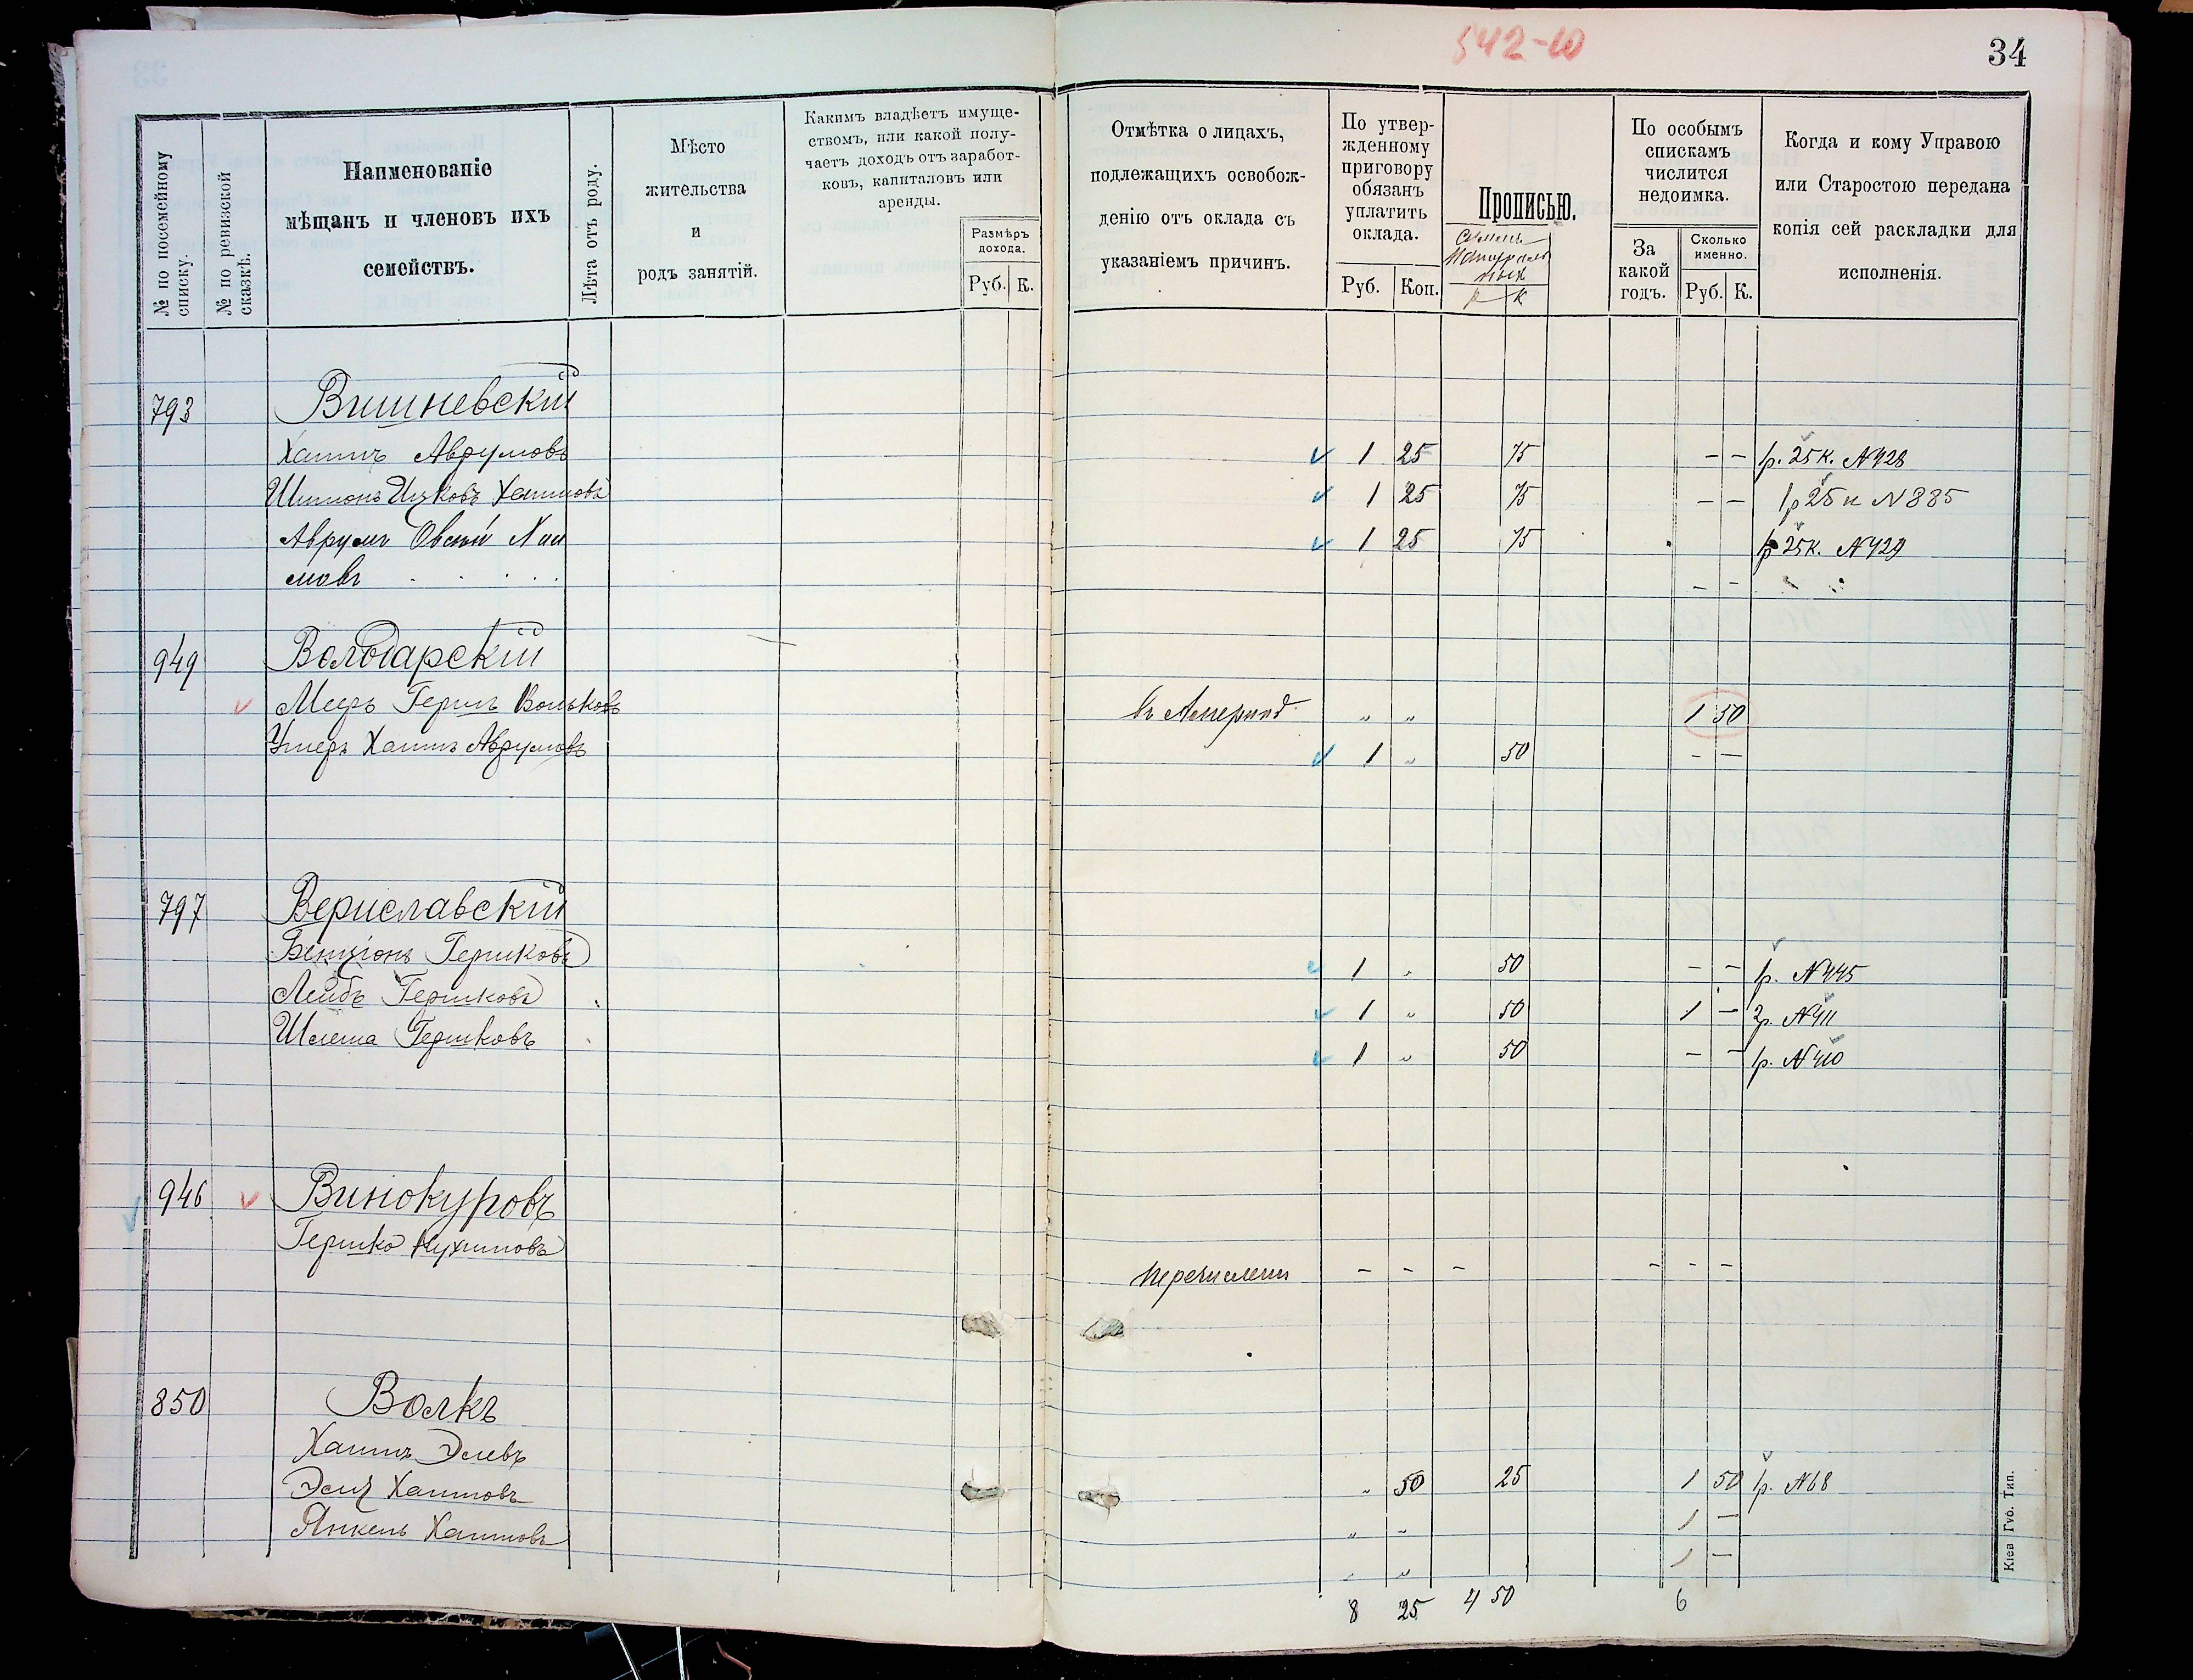 542-10
34
№ по посемейному списку.
№ по ревизской сказкѣ.
Наименованіе
мѣщанъ и членовъ ихъ
семействъ.
Лѣта отъ роду.
Мѣсто
жительства
и
родъ занятій.
Какимъ владѣетъ имуще-
ствомъ, или какой полу-
чаетъ доходъ отъ заработ-
ковъ, капиталовъ или
аренды.
Размѣръ
дохода.
Руб. К.
Отмѣтка о лицахъ,
подлежащихъ освобож-
денію отъ оклада съ
указаніемъ причинъ.
По утвер-
жденному
приговору
обязанъ
уплатить
оклада.
Руб. Коп.
Прописью.
р к
По особымъ
спискамъ
числится
недоимка.
За
какой
годъ.
Сколько
именно.
Руб. К.
Когда и кому Управою
или Старостою передана
копія сей раскладки для
исполненія.
793 Вишневскій
Хаимъ Аврумовъ 1 25 75 – – р. 25 к. №428
Шимонъ Ицковъ Хаимовъ 1 25 75 – – 1р 25 к №885
Аврумъ Овсій Хаи 1 25 75 р 25 к. №429
мовъ – –
949 Володарскій
Мееръ Гершъ Вольковъ въ Америкѣ „ „ 1 50
Умеръ Хаимъ Аврумовъ 1 „ 50 – –
797 Вериславскій
Бенціонъ Гершковъ 1 „ 50 – – р. №445
Лейбъ Гершковъ 1 „ 50 1 – 2р. №411
Шлема Гершковъ 1 „ 50 – – р. №410
946 Винокуровъ
Гершко Нухимовъ
перечисленъ – – – – – –
850 Волкъ
Хаимъ Элевъ
Хаимовъ „ 50 25 1 50 р. №68
Янкель Хаимовъ „ „ 1 –
„ „ 1 –
8 25 4 50 6
Кіев Губ. Тип.